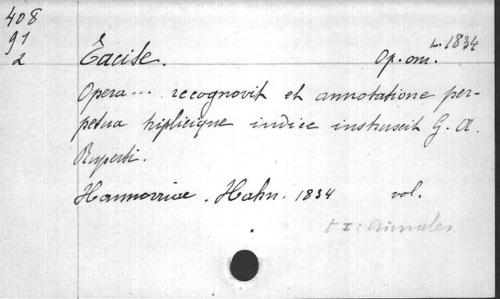 408
91
2
L. 1834
Tacite. Op. om.
Opera... recognovit et annotatione per-
petua triplicique indice instruxit G. A.
Ruperti.
Hannovriae. Hahn. 1834 vol.
t I: annales